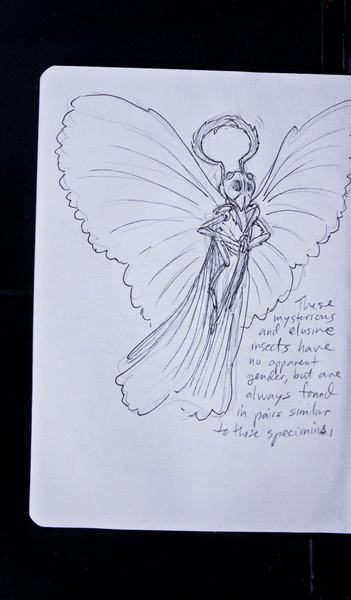 These
mysterious
and elusive
insects have
no apparent
gender, but are
always found
in pairs similar
to these specimins